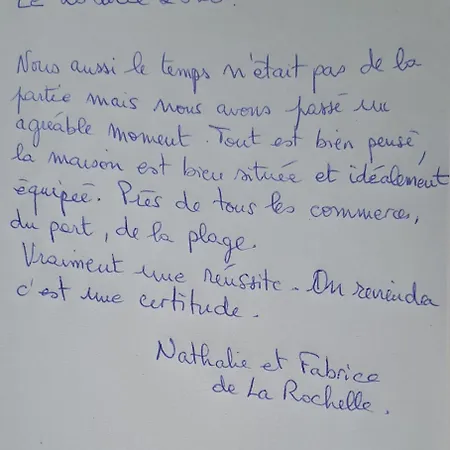 Nous aussi le temps n'était pas de la
partie mais nous avons passé un
agréable moment. Tout est bien pensé,
la maison est bien située et idéalement
équipée. Près de tous les commerces,
du port, de la plage.
Vraiment une réussite. On reviendra
c'est une certitude.
Nathalie et Fabrice
de La Rochelle.